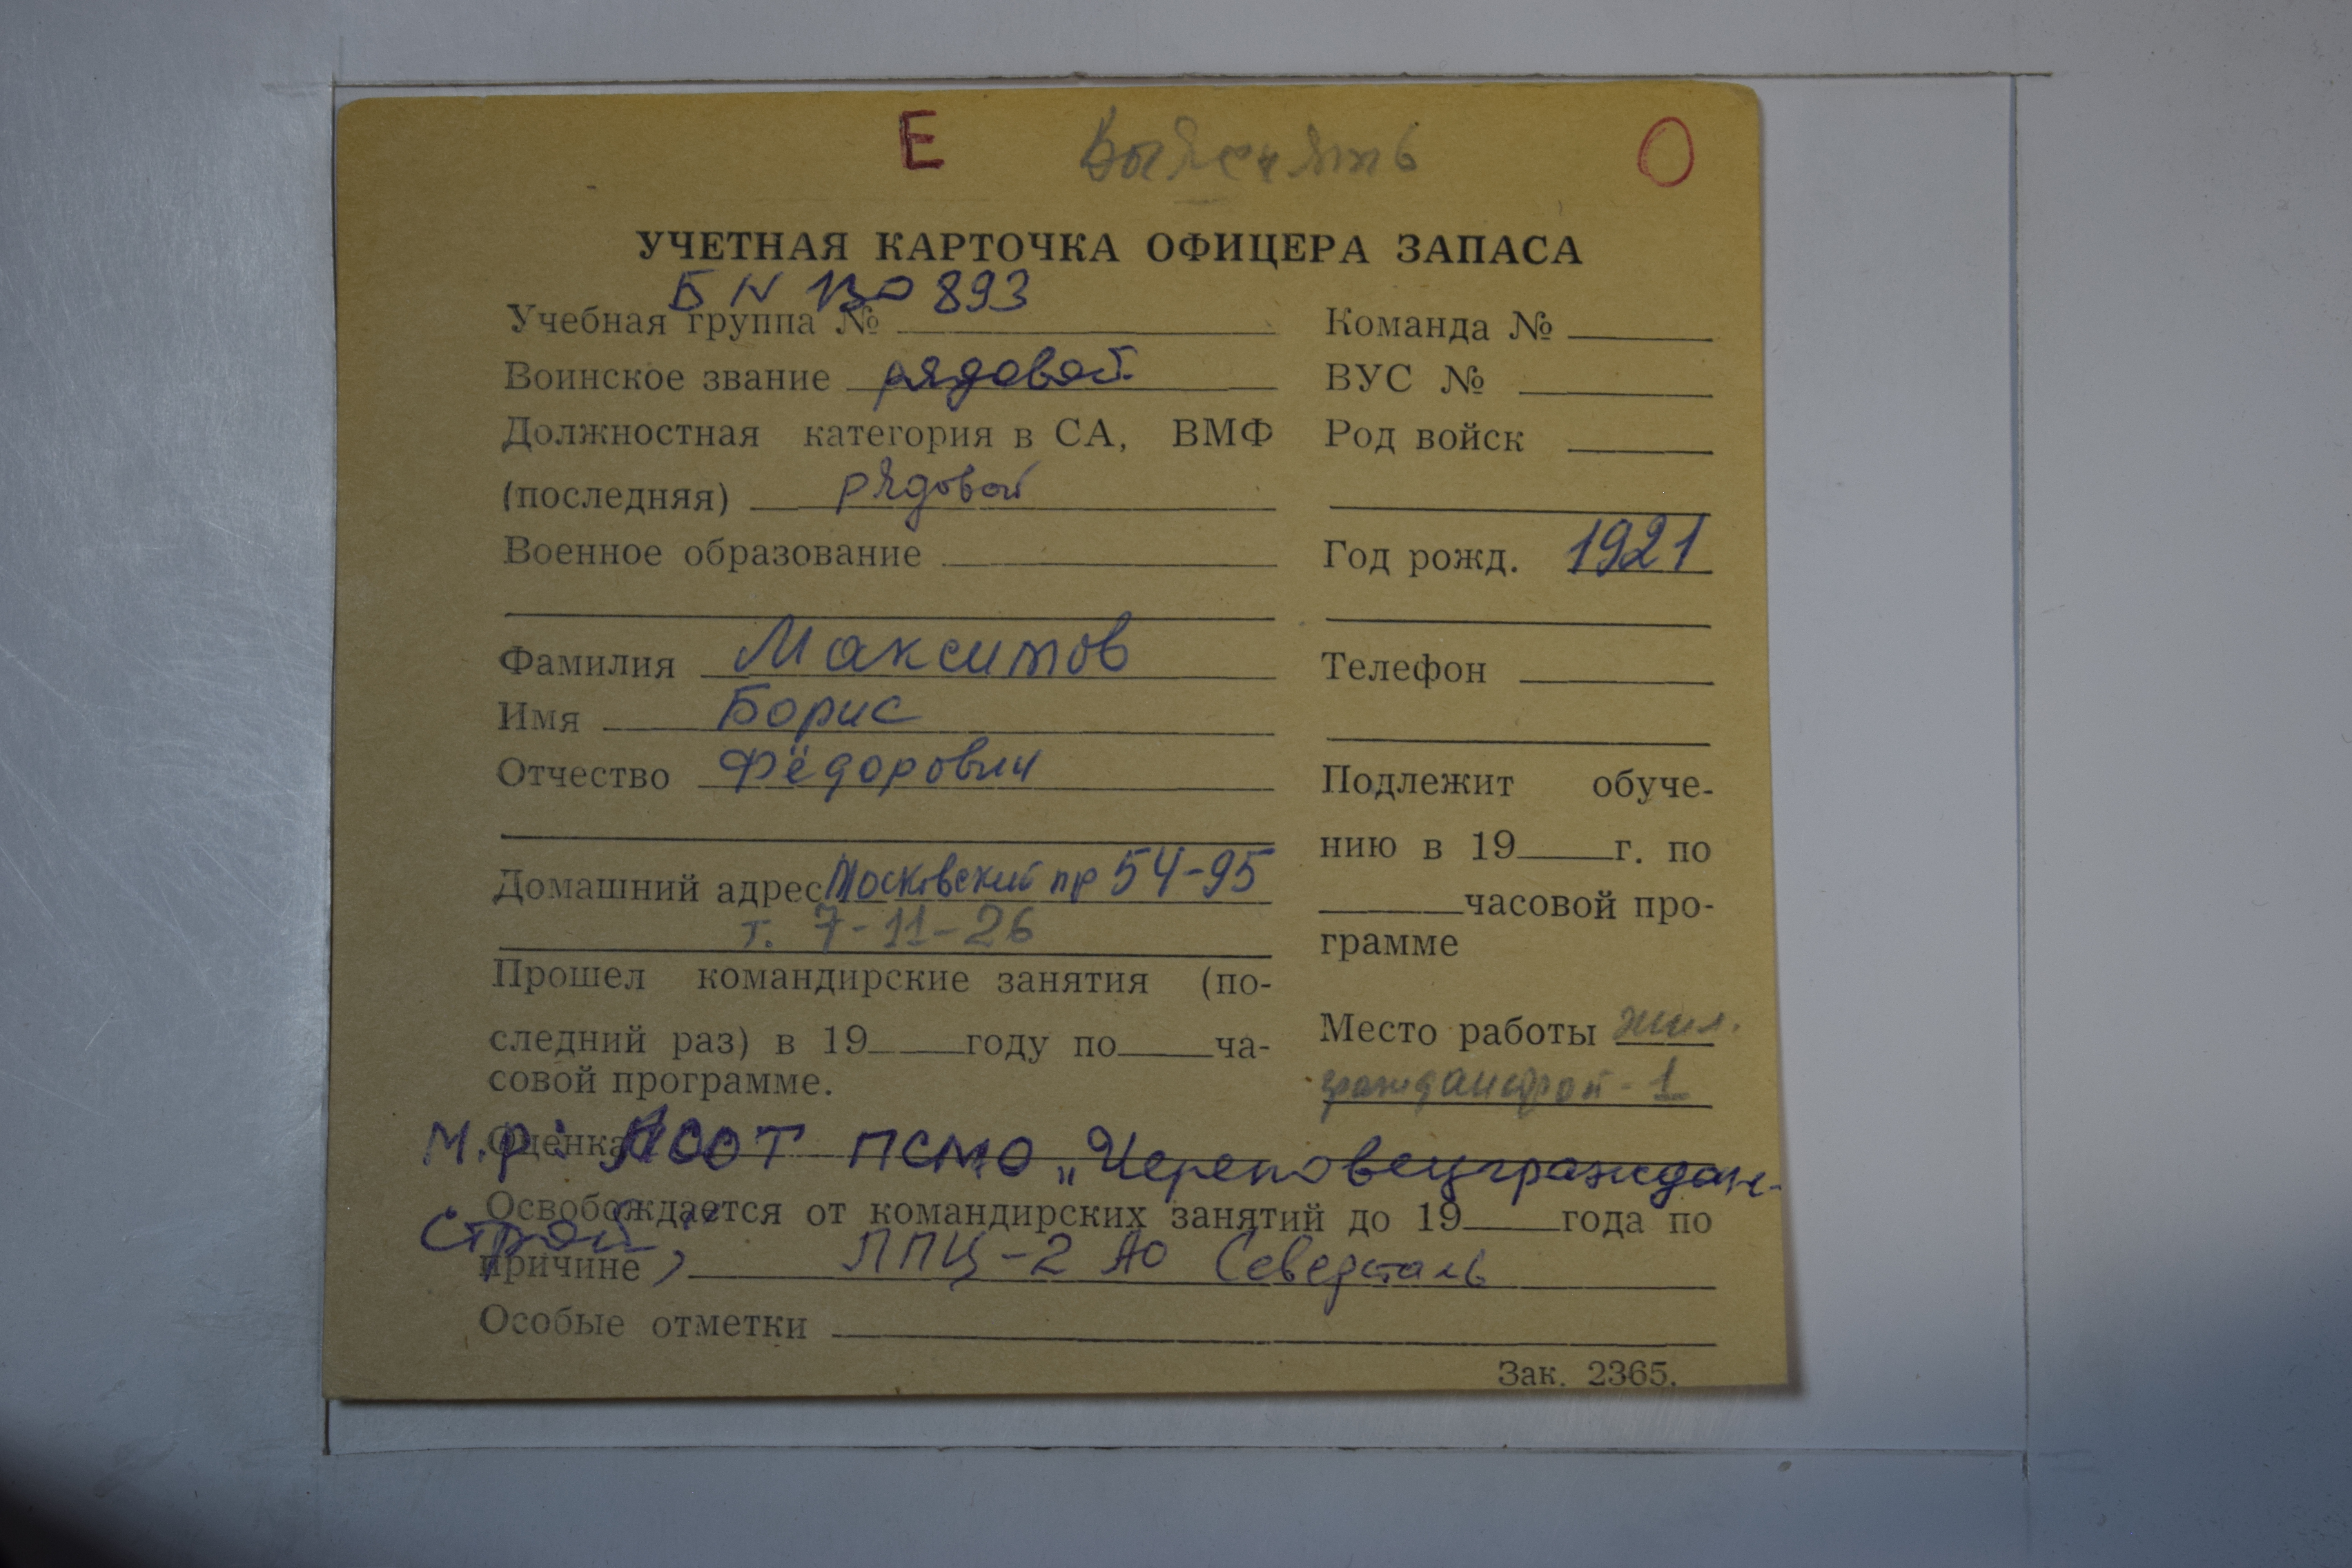 Е Выяснять О
УЧЕТНАЯ КАРТОЧКА ОФИЦЕРА ЗАПАСА
БN 130893
Учебная группа №
Воинское звание рядовой
Должностная категория в СА, ВМФ
(последняя) рядовой
Военное образование
Фамилия Максимов
Имя Борис
Отчество Фёдорович
Домашний адрес Московский пр 54-95
т. 7-11-26
Прошел командирские занятия (по-
следний раз) в 19 году по ча-
совой программе.
Команда №
ВУС №
Род войск
Год рожд. 1921
Телефон
Подлежит обуче-
нию в 19 г. по
часовой про-
грамме
Место работы жил.
гражданстрой-1
Оценка
М.р: ПСМО „Череповецграждан-
Освобождается от командирских занятий до 19 года по
строй",
причине ЛПЦ-2 АО Северсталь
Особые отметки
Зак. 2365.